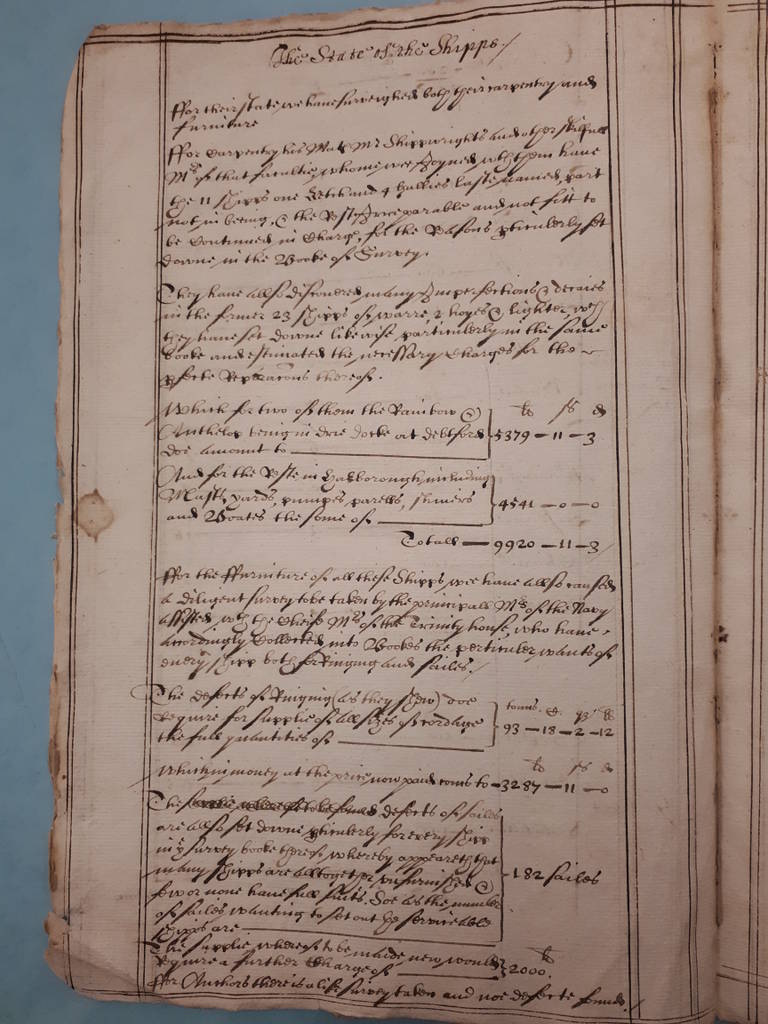 The State of the Shipps /
ffor their state, we have surveighed both their carpentry and
furniture
ffor Carpentry his Mats Mr Shippwrights and other skilfull
Mrs of that facultie, whome wee Joyned wth them have
the 11 Shipps one Ketch and 4 Gallies laste named, part
not in beeing, & the Rest Irreparable and not fitt to
be Continued in Charge, for the Reasons pticulerly set
downe in the Booke of Survey.
They have allso discovered many Imperfections & decaies
in the former 23 Shipps of warre, 2 hoyes & lighter, wch
they have set downe likewise, particulerly in the same
booke and estimated the necessary Charges for the
pfecte Reparacons thereof.
Which for two of them the Rainbow &
Anthelop being in drie docke at debtford
doe amount to
li s d
5379 - 11 - 3
And for the Reste in including
Masts, yards, pumpes, parells,
and Boates the some of
4541 - 0 - 0
Totall - 9920 - 11 - 3
ffor the ffurniture of all these Shipps, wee have allso caused
a diligent survey to be taken by the principall Mrs of the Navy
assisted wth the Cheife Mrs of the Trinity house, who have
accordingly Collected into Bookes the perticuler wants of
every shipp both for Riging and sailes /
The defects of Riging (as they shew) doe
Require for supplie of all sizes of cordage
the full quantities of
tonns. C. qr li
93 - 18 - 2 - 12
li s d
Which in money at the price now paid coms to - 3287 - 11 - 0
The defects of sailes
are allso set downe pticulerly for every shipp
in ye survey booke thereof, whereby appeareth that
many Shipps are alltogether unfurnished &
few or none have full suits. Soe as the number
of sailes wanting to set out ye serviceable
Shipps are
182 sailes
The supplie whereof to be made new would
Require a further Charge of
li
2000.
ffor Anchors there is a like survey taken and noe defecte found.